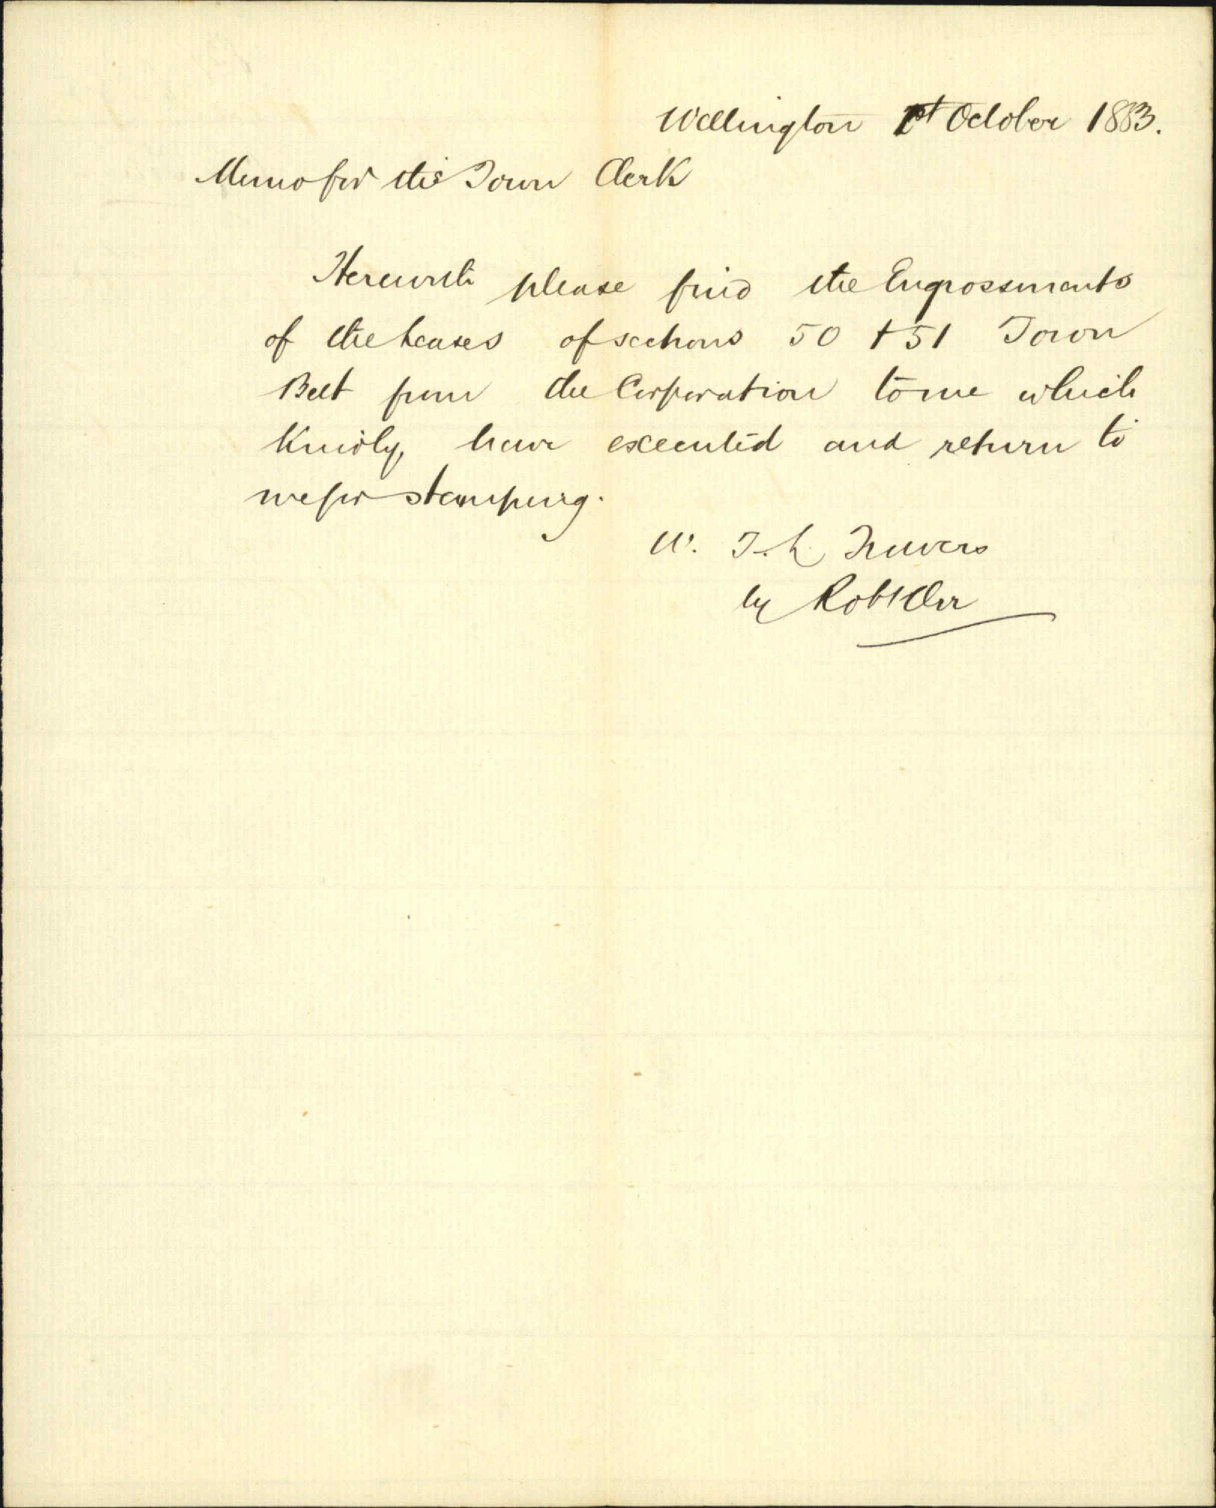 Wellington 1st October 1883.
Memo for the Town Clerk
Herewith please find the Engrossments
of the Leases of sections 50 + 51 Town
Belt from the Corporation to me which
kindly, have executed and return to
me for stamping.
W. T. L. Travers
by Robt Orr